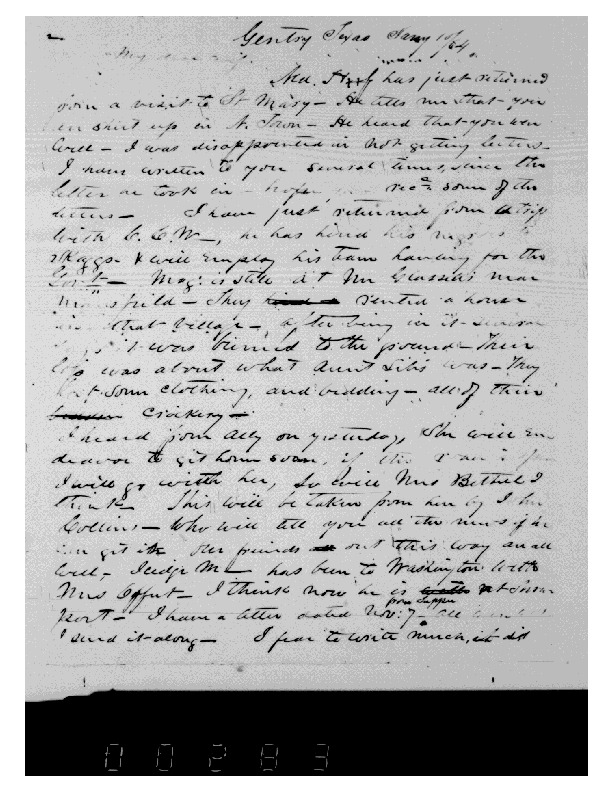 Gentry Texas Jany 1st/64
My dear
Ned has just returned
from a visit to St Mary - He tells me that you
are shut up in N. Town - He heard that you were
well - I was disappointed in not getting letters -
I have written to you several times, since the
letter he took in - hope, you recd some of the
letters - I have just returned from a trip
with C.C.W -, he has hired his negroes to
Skaggs & will employ his team hauling for the
Govt - is still at Mr near
Mansfield - They rented a house
in that village -, after being in it several
days it was burned to the ground - Their
loss was about what Aunt was - They
lost some clothing, and bedding - all of their
Crockery -
I heard from Ally on yesterday, She will en
deavor to git home soon, if
I will go with her, So will Mrs Bethel I
think - This will be taken from her by
Collins - Who will tell you all the news if he
can git in our friends out this way are all
well - Judge M - has been to Washington with
Mrs Offut - I think now he is at
port - I have a letter dated Nov: 7th from
I send it along - I fear to write much, it
00283